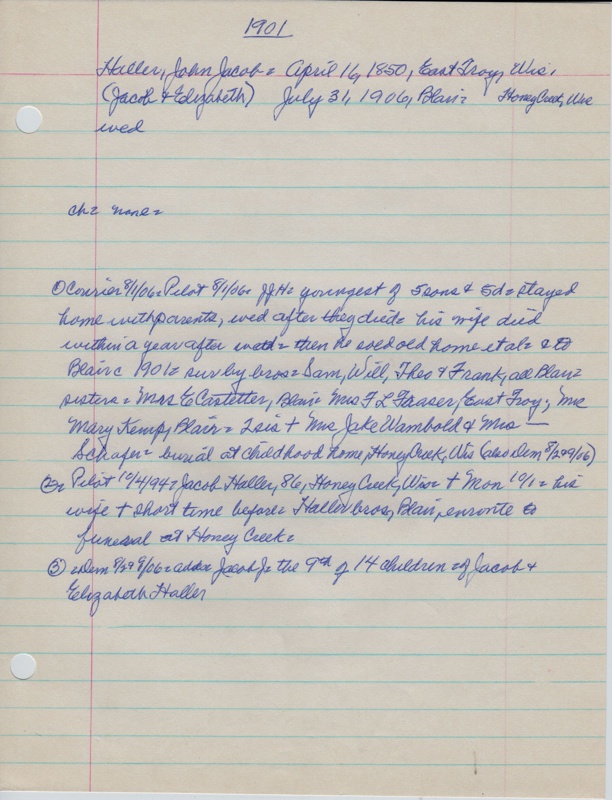 1901
Haller, John Jacob = April 16, 1850, East Troy, Wis.
(Jacob & Elizabeth) July 31, 1906, Blair = Honey Creek, Wis
wed
ch = none =
① Courier 8/1/06 = Pilot 8/1/06 = JJH = youngest of 5 sons & 5 d = stayed
home with parents, wed after they died = his wife died
within a year after wed = then he sold old home et al = & to
Blair c 1901 = sur by bros = Sam, Will, Theo & Frank, all Blair =
sisters = Mrs E Castetter, Blair = Mrs F L Fraser, East Troy;
Mary Kemp, Blair = 2 sis + Mrs Jake Wambold & Mrs —
Schafer = burial at childhood home, Honey Creek, Wis (also Dem
② = Pilot 10/4/94 = Jacob Haller, 86, Honey Creek, Wis = + Mon 10/1 = his
wife + short time before = Haller bros, Blair, enroute to
funeral at Honey Creek =
③ = Dem = adds = Jacob J = the 9th of 14 children = of Jacob &
Elizabeth Haller